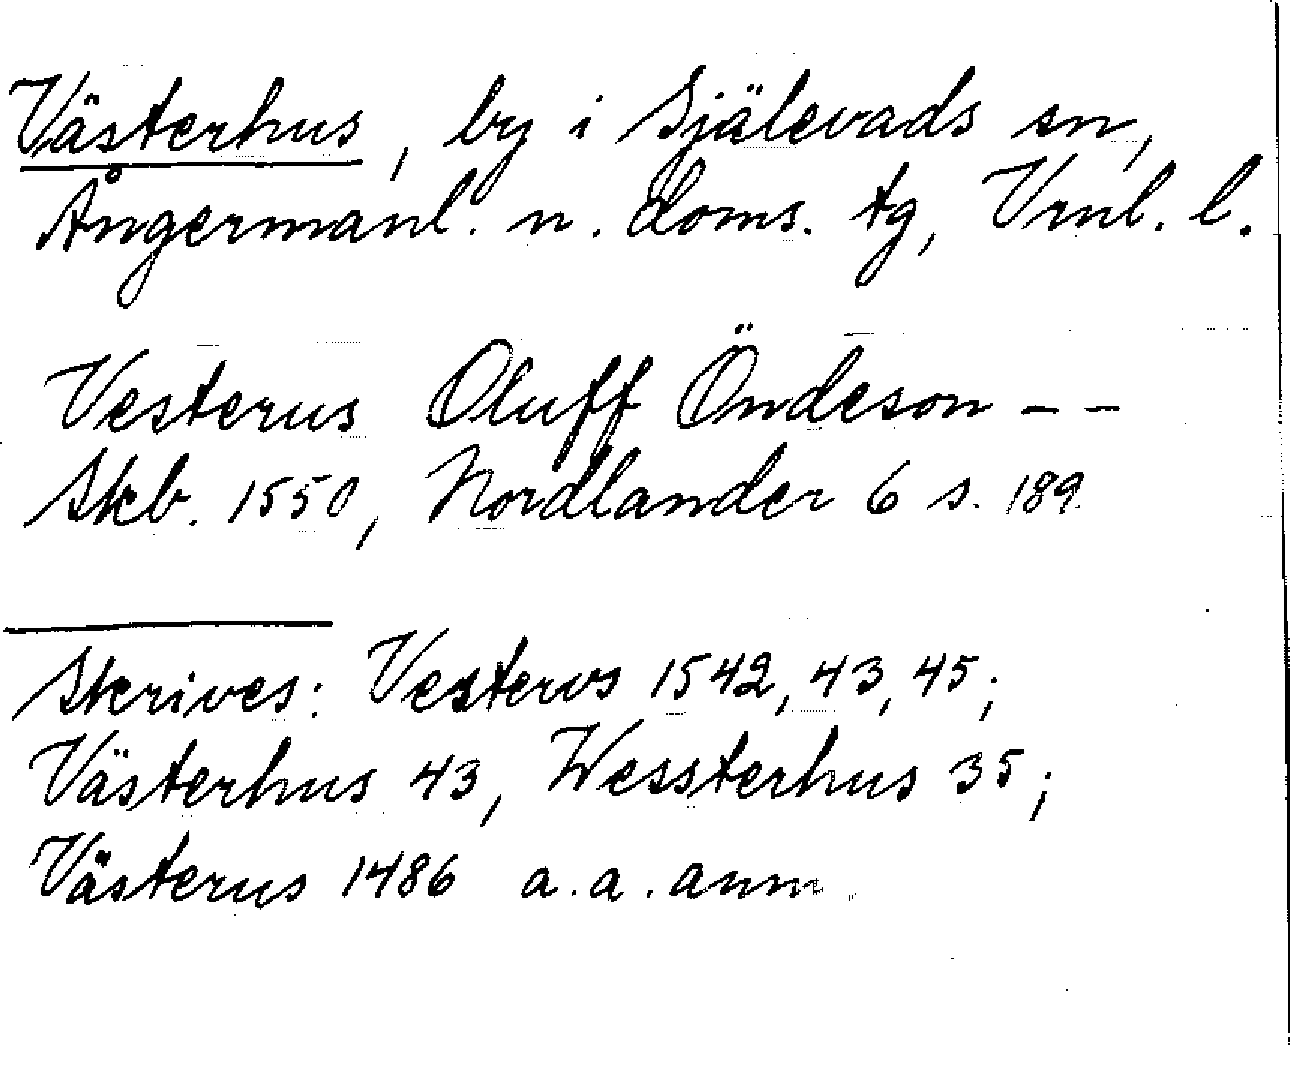 Västerhus, by i Själevads sn,
Ångermanl. n. doms. tg, Vrnl. l.
Vesterus Oluff Öndeson - -
Skb. 1550, Nordlander 6 s. 189.
Skrives: Vesterus 1542, 43, 45;
Västerhus 43, Wessterhus 35;
Västerus 1486 a.a. anm.